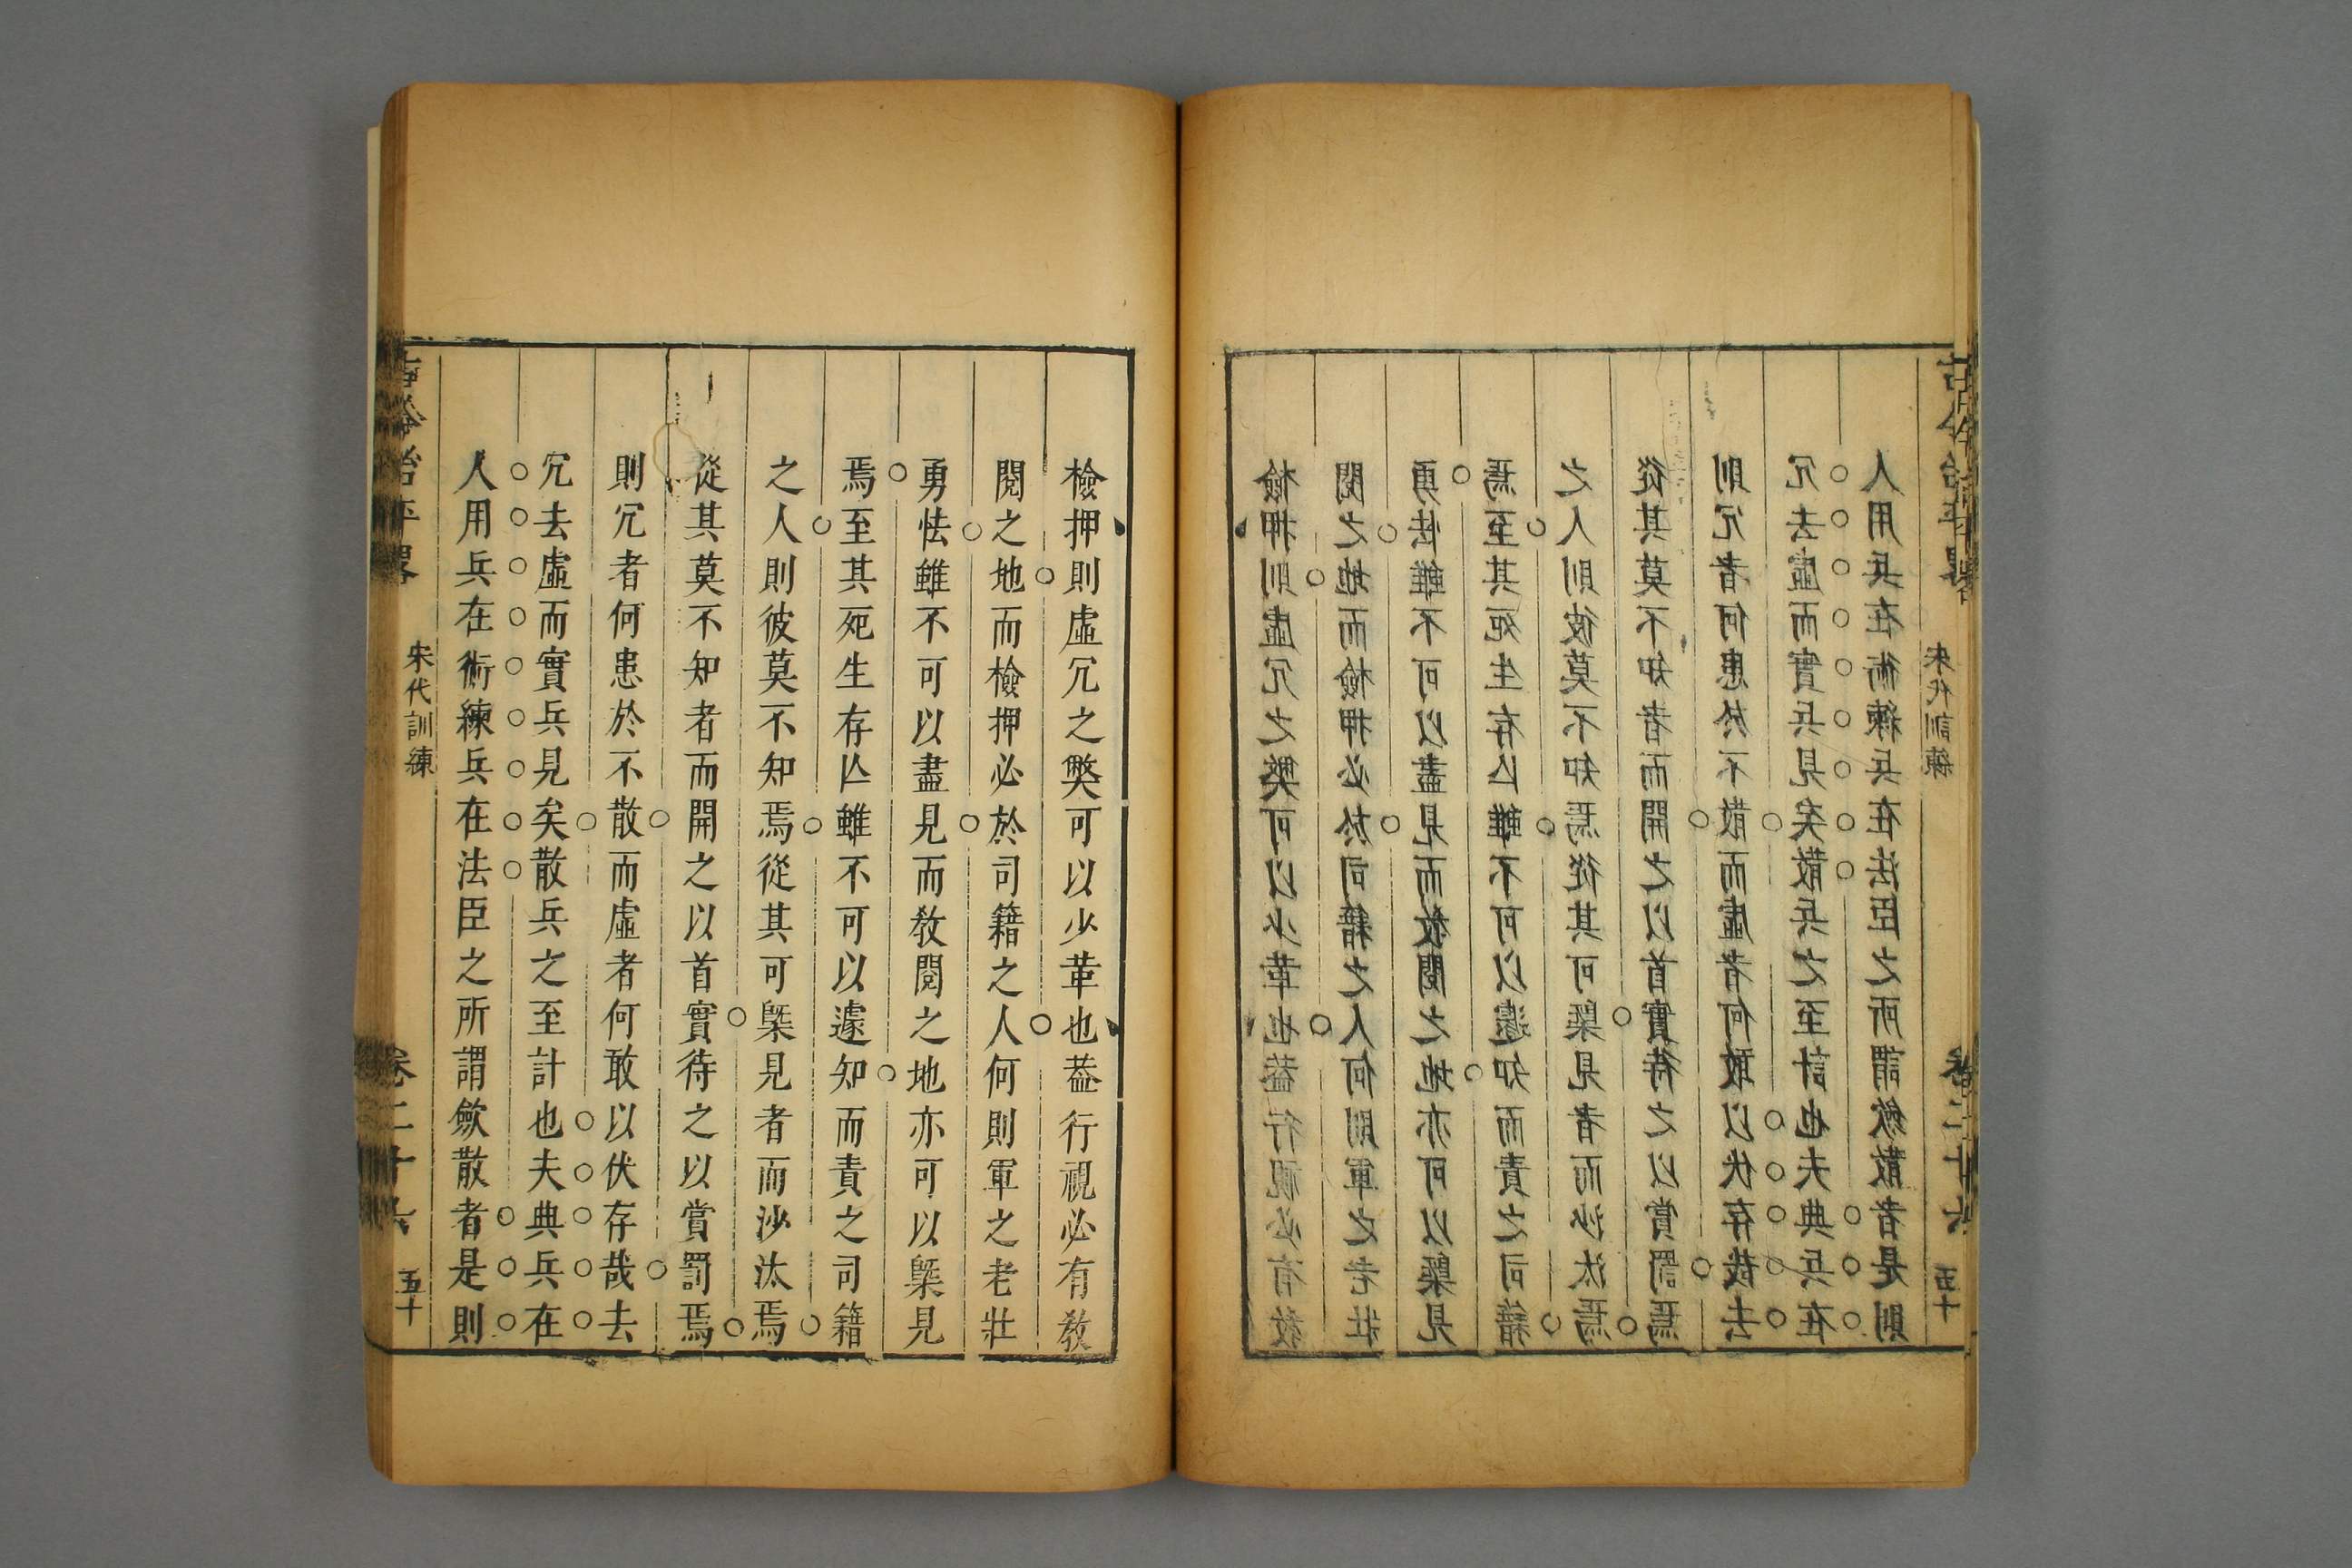 檢押則虛冗之獘可以少革也葢行視必有敎
閱之地而檢押必於司籍之人何則軍之老壯
勇怯雖不可以盡見而敎閱之地亦可以槩見
焉至其死生存亾雖不可以遽知而責之司籍
之人則彼莫不知焉從其可槩見者而沙汰焉
從其莫不知者而開之以首實待之以賞罰焉
則冗者何患於不散而虛者何敢以伏存哉去
冗去虛而實兵見矣散兵之至計也夫典兵在
人用兵在術練兵在法臣之所謂歛散者是則
治平畧 宋代訓練 卷二十六 五十